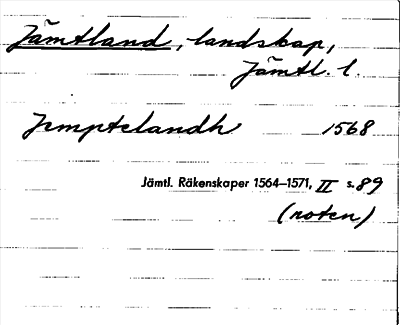 Jämtland, landskap,
Jämtl. l.
Jemptelandh 1568
Jämtl. Räkenskaper 1564–1571, II s. 89
(noten)